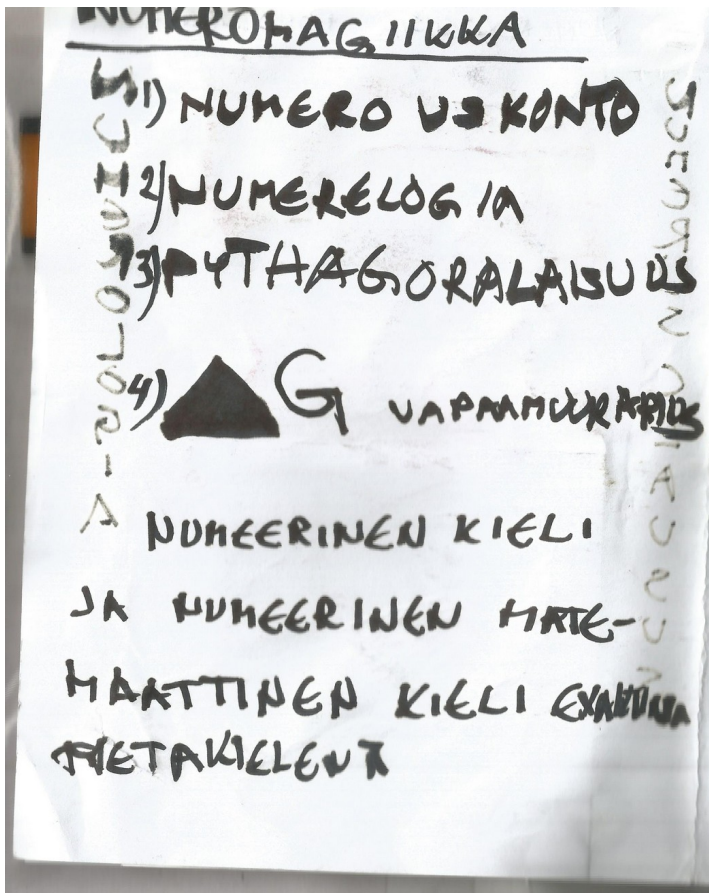 NUMEROMAGIIKKA
1) NUMERO USKONTO
2) NUMERELOGIA
3) PYTHAGORALAISUUS
4) G VAPAAMUURARIUS
NUMEERINEN KIELI
JA NUMEERINEN MATE-
MAATTINEN KIELI EXAKTINA
METAKIELENÄ